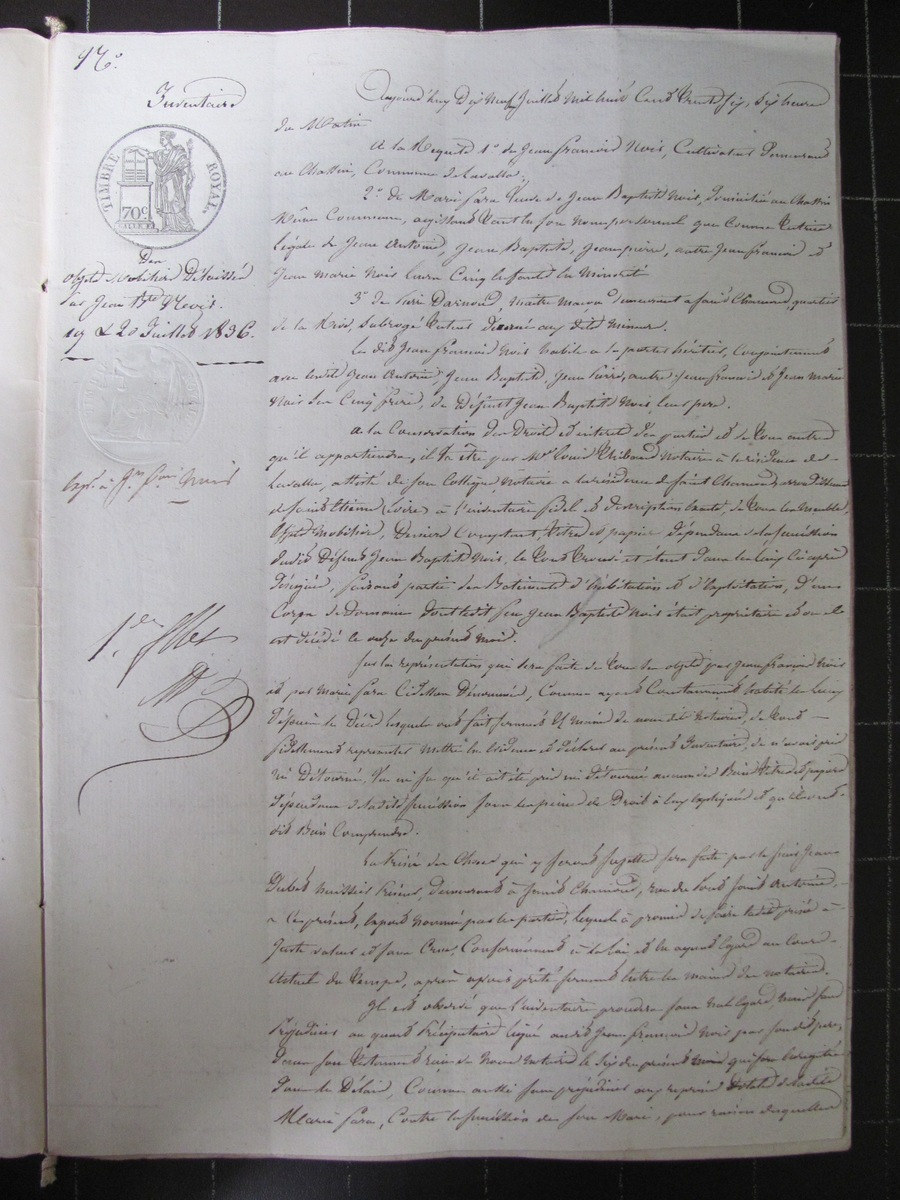 Inventaire
TIMBRE ROYAL
70c
Des
objets mobilier Délaissés
par Jean Bte Nevis
19 & 20 Juillet 1836.
Aujourd'huy Dix Neuf Juillet Mil huit Cent Trente Six, Six heures
du Matin
A la Requete 1º de Jean françois Nois, Cultivateur Demeurant
au Chassin, Commune de Lavalla,
2º de Marie fara Veuve de Jean Baptiste Nois, Domiciliée au Chassin
Même Commune, agissant tant en son nom personnel que Comme Tutrice
légale de Jean Antoine, Jean Baptiste, Jean pierre, autre Jean françois et
Jean Marie Nois leurs Cinq Enfants En Minorité
3º de Darnon, Maitre Maçon Demeurant a Saint Chamond quartier
de la Rive, Subrogé Tuteur Décerné aux dits Mineurs.
Le dit Jean françois Nois habile a se porter héritier, Conjointement
avec lesdits Jean Antoine Jean Baptiste, Jean Pierre, autre Jean francois & Jean Marie
Nois Ses Cinq frères, de Défunt Jean Baptiste Nois, leur pere.
A la Conservation des Droits et interets des parties et de tous autres
qu'il appartiendra, il va être par Me Louis Thibaud Notaire à la résidence de
Lavalla, assisté de son Collègue, Notaire a la résidence de Saint Chamond, arrondissement
de Saint Etienne (Loire) à l'inventaire fidel et description exacte, de tous les Meubles,
Objets Mobilier, Deniers Comptant, titres et papiers Dépendans de la succession
dudit Défunt Jean Baptiste Nois, le tout trouvé et étant dans les lieux Ci après
Désignés, faisant partie des Batiments d'habitation et d'exploitation, d'un
Corps de Domaine dont ledit feu Jean Baptiste Nois était propriétaire et ou il
est décédé le onze du présent mois.
Sur la représentation qui sera faite de tous les objets par Jean François Nois
et par Marie fara Ci dessus Dénommés, Comme ayant Constamment habité les lieux
Depuis le Décès lesquels ont fait serment Es mains de nous dit Notaires, de tout
fidellement représenter mettre En évidence & Déclarer au présent Inventaire, de n'avoir pris
ni Détourné, Vu ni su qu'il ait été pris ni détourné aucuns des Biens titres et papiers
Dépendans de ladite succession sous les peines de Droit à Eux expliquées et qu'ils ont
dit Bien Comprendre.
La Prisée des Choses qui y seront sujettes sera faite par le sieur Jean
Dubest huissier Priseur, Demeurant à Saint Chamond, rue de Saint Antoine,
a Ce présent, Expert nommé par les parties, lequel a promis de faire ladite prisée à
Juste valeur et sans Crue, Conformément à la loi et En ayant égard au Cours
Actuel du temps, après avoir prêté serment Entre les mains des notaires.
Il est observé que l'inventaire procedera sous nul égard Mais sans
Préjudicier au quart Préciputaire Légué audit Jean françois Nois par son dit pere,
dans son Testament reçu de Nous Notaire le Six du présent Mois qui sera Enregistré
dans le Délai, Comme aussi sans préjudicier aux reprises totales de ladite
Marie fara, Contre la succession de son Mari, pour raison desquelles